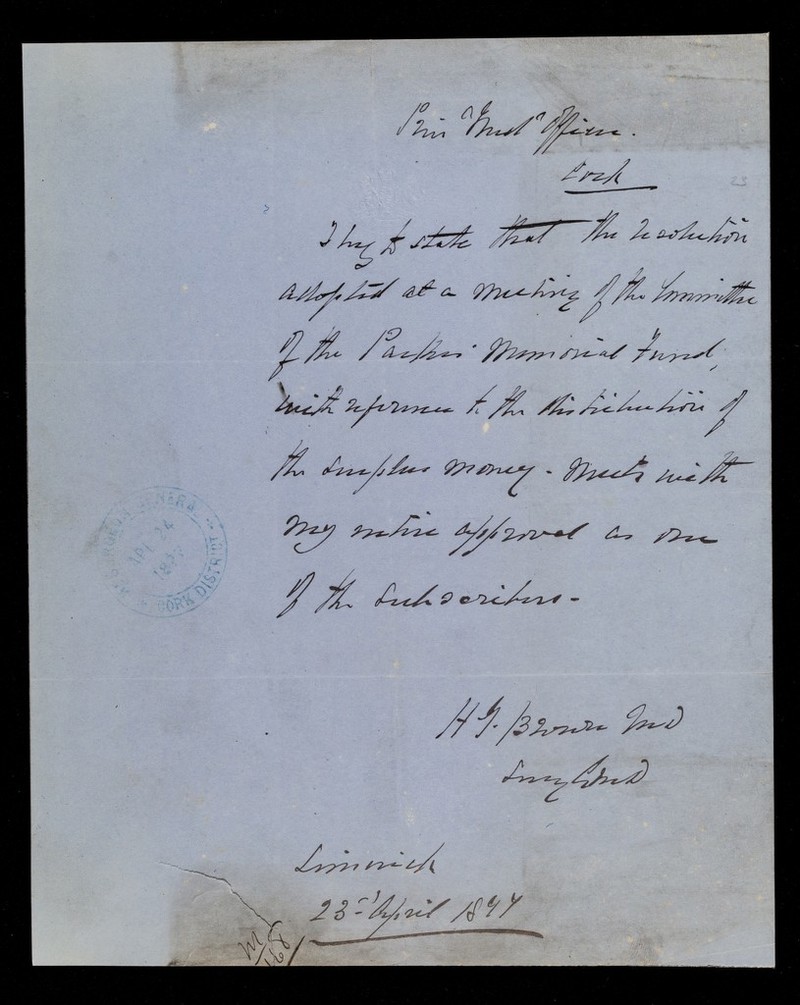 Prin Med Officer.
Cork
23
I beg to state that the resolution
adopted at a meeting of the Committee
of the Parkes Memorial Fund,
with reference to the distribution of
the surplus money - meets with
my entire approval as one
of the Subscribers -
SURGEON GENERAL
APL 24
1877
CORK DISTRICT
H J. Browne MD
Surg
Limerick
23rd April 1877
M
168